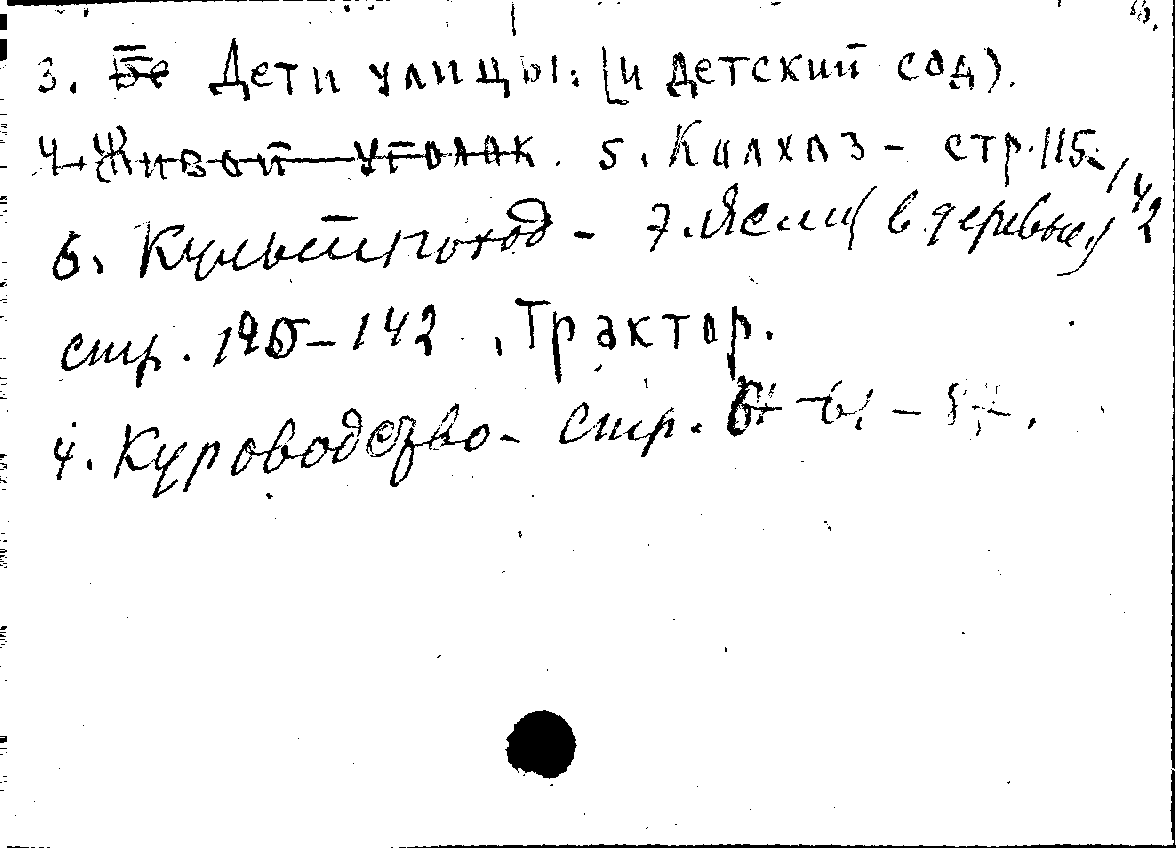 3. Бе Дети улицы. (и детский сад).
4. Живой уголок. 5. Колхоз - стр. 115-142
6. Культпоход - 7. Ясли (в деревне)
стр. 125-142, Трактор.
4. Куроводство - стр.